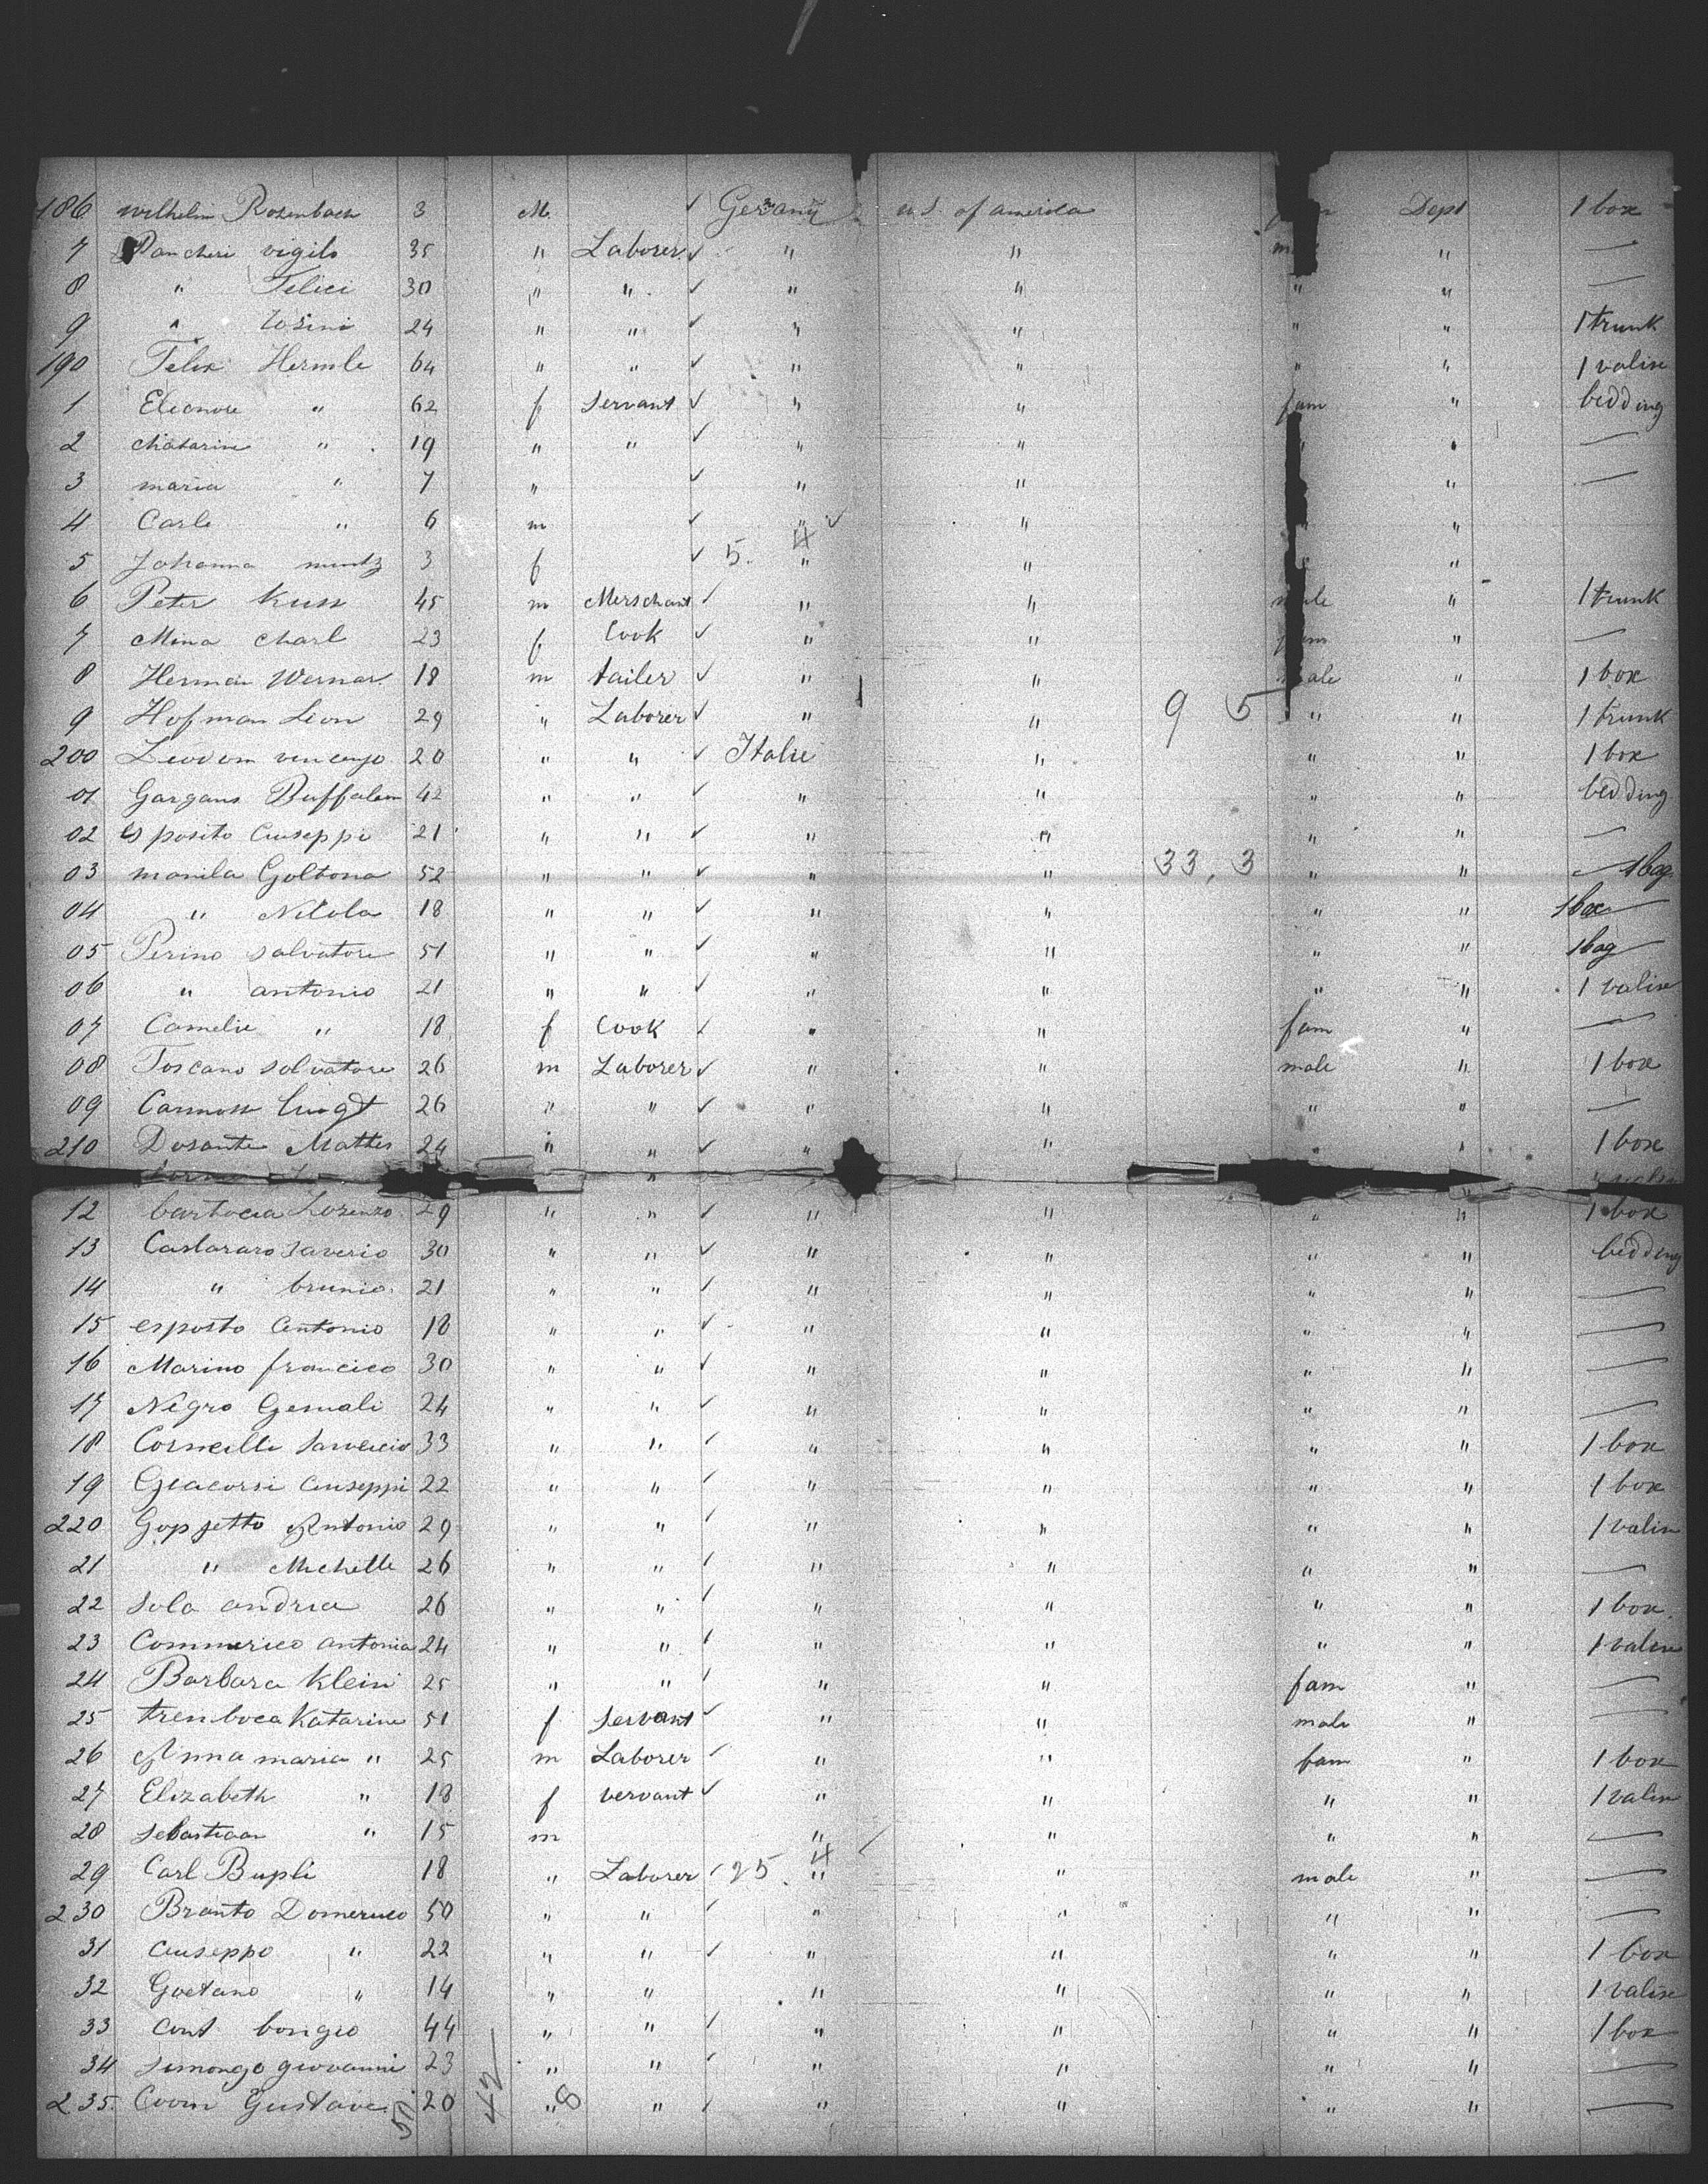 186 Wilhelm Rosenbach 3 M. ✓ Germany U.S. of america Dept 1 box
7 Pancheri vigilo 35 " Laborer ✓ " " " —
8 " Felici 30 " " ✓ " " " " —
9 " 24 " " ✓ " " " " 1 trunk
190 Felix Hermle 64 " " ✓ " " " " 1 valise
1 Eleonore " 62 f servant ✓ " " fam " bedding
2 chatarine " 19 " " ✓ " " " —
3 maria " 7 " ✓ " " " —
4 Carle " 6 m ✓ " ✓ " "
5 Johanna muntz 3 f ✓ 5. 4 " " "
6 Peter Kuss 45 m Merschant ✓ " " male " 1 trunk
7 Mina Charl 23 f Cook ✓ " " fam " —
8 Herman Wernar 18 m tailer ✓ " " male " 1 box
9 Hofman Leon 29 " Laborer ✓ " " 9 5 " " 1 trunk
200 20 " " ✓ Italie " " " 1 box
01 Gargano Buffalom 42 " " ✓ " " " " bedding
02 esposito Ciuseppi 21 " " ✓ " " " " —
03 manila Goltona 52 " " ✓ " " 33, 3 " " 1 bag
04 " Nilola 18 " " ✓ " " " " 1 box
05 Perino salvatore 51 " " ✓ " " " " 1 bag
06 " antonio 21 " " ✓ " " " " 1 valise
07 Camelie " 18 f Cook ✓ " " fam " —
08 Toscano solvatore 26 m Laborer ✓ " " male " 1 box
09 26 " " ✓ " " " " —
210 Dosante Mattes 24 " " ✓ " " " " 1 box
12 bartocia Lorenzo 29 " " ✓ " " " " 1 box
13 Castararo saverio 30 " " ✓ " " " " bedding
14 " brunio 21 " " ✓ " " " " —
15 esposto Antonio 18 " " ✓ " " " " —
16 Marino francico 30 " " ✓ " " " " —
17 Negro Gemali 24 " " ✓ " " " " —
18 Cornelli 33 " " ✓ " " " " 1 box
19 Giacorsi Ciuseppi 22 " " ✓ " " " " 1 box
220 Antonio 29 " " ✓ " " " " 1 valise
21 " Michelle 26 " " ✓ " " " " —
22 Sola andrea 26 " " ✓ " " " " 1 box
23 Commerico antonia 24 " " ✓ " " " " 1 valise
24 Barbara Klein 25 " " ✓ " " fam " —
25 trenboca Katarine 51 f servant ✓ " " male " —
26 Anna maria " 25 m Laborer ✓ " " fam " 1 box
27 Elizabeth " 18 f servant ✓ " " " " 1 valise
28 sebastiaan " 15 m " ✓ " " " —
29 Carl Bupli 18 " Laborer ✓ 25. 4 " " male " —
230 Branto Domenico 50 " " ✓ " " " " —
31 Ciuseppo " 22 " " ✓ " " " " 1 box
32 Goetano " 14 " " " " " " 1 valise
33 Cont bongio 44 " " ✓ " " " " 1 box
34 simongo giovanni 23 " " ✓ " " " " —
235. Coom Gustave 20 " " ✓ " " " " —
42 8